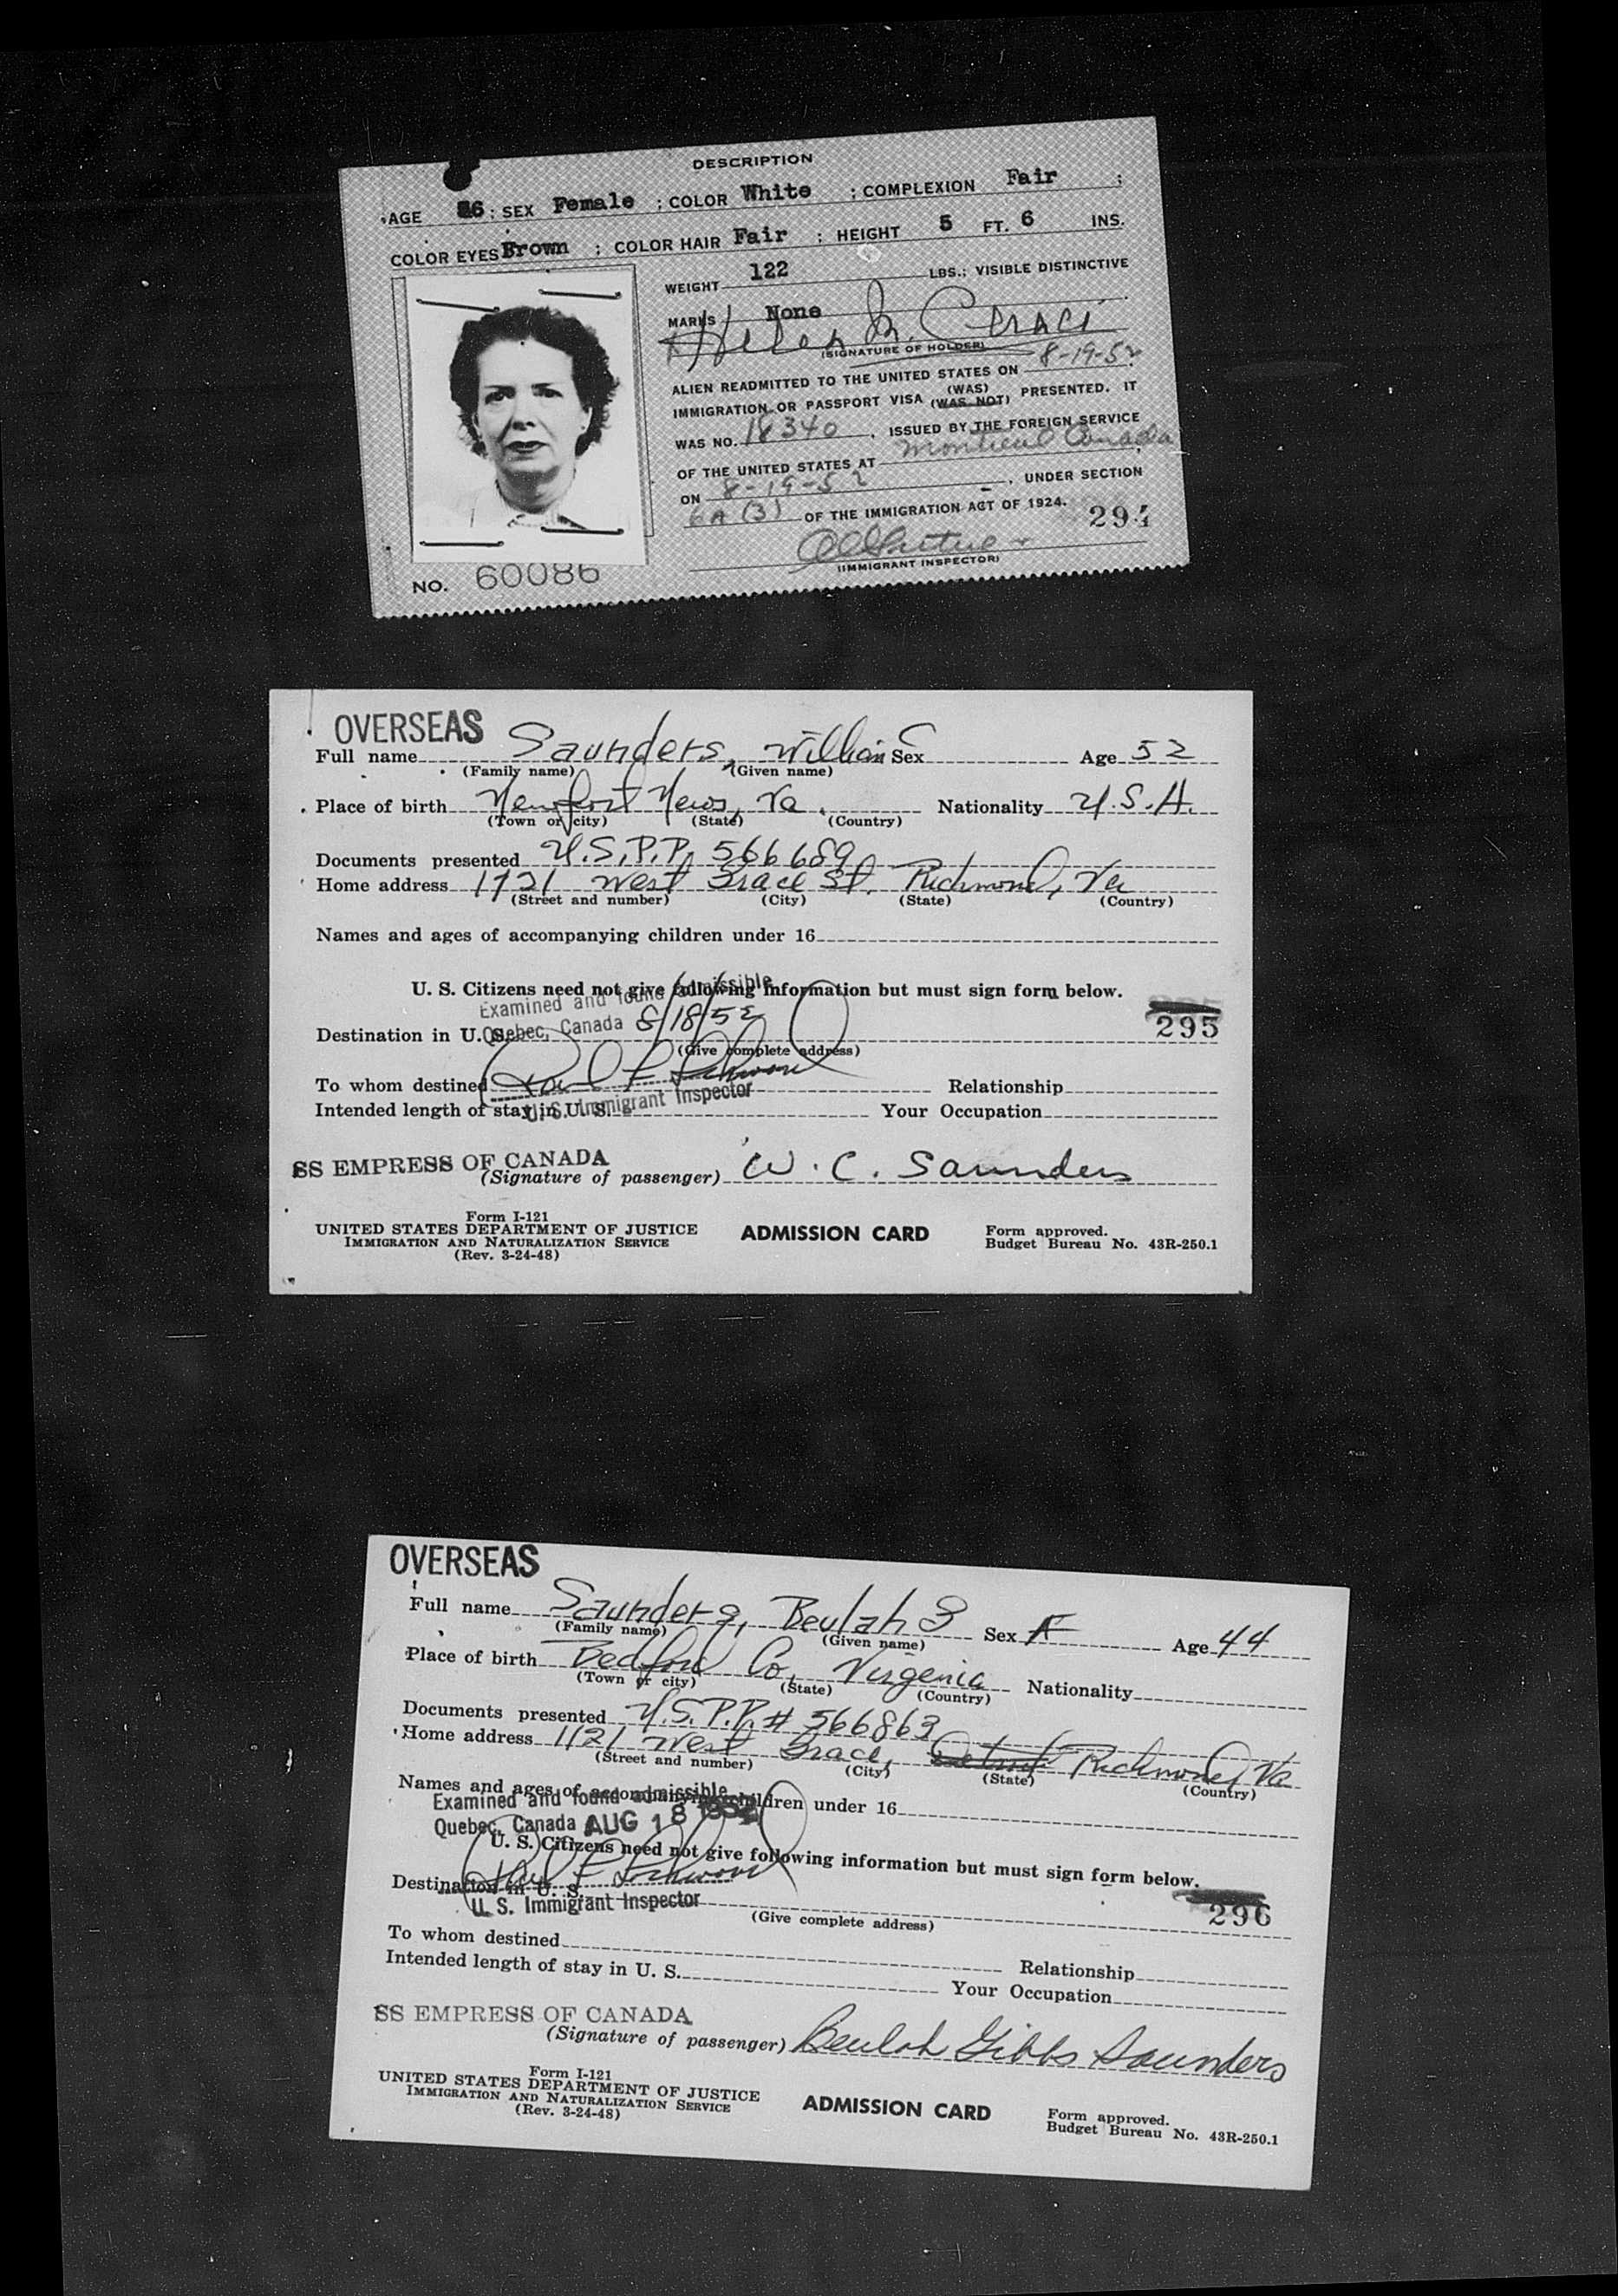 DESCRIPTION
AGE 46 ; SEX Female ; COLOR White ; COMPLEXION Fair ;
COLOR EYES Brown ; COLOR HAIR Fair ; HEIGHT 5 FT. 6 INS.
WEIGHT 122 LBS.; VISIBLE DISTINCTIVE
MARKS None
Helen M. Geraci
(SIGNATURE OF HOLDER)
ALIEN READMITTED TO THE UNITED STATES ON 8-19-52
IMMIGRATION OR PASSPORT VISA (WAS) (WAS NOT) PRESENTED. IT
WAS NO. 18340, ISSUED BY THE FOREIGN SERVICE
OF THE UNITED STATES AT Montreal Canada,
ON 8-19-52, UNDER SECTION
6A (3) OF THE IMMIGRATION ACT OF 1924.
294
(IMMIGRANT INSPECTOR)
NO. 60086
OVERSEAS
Full name Saunders, William C Sex Age 52
(Family name) (Given name)
Place of birth Newport News, Va. Nationality U.S.A.
(Town or city) (State) (Country)
Documents presented U.S.P.P. 566689
Home address 1721 West Grace St. Richmond, Va
(Street and number) (City) (State) (Country)
Names and ages of accompanying children under 16
U. S. Citizens need not give following information but must sign form below.
Examined and found admissible
Quebec, Canada 8/18/52
295
Destination in U. S.
(Give complete address)
To whom destined Relationship
U. S. Immigrant Inspector
Intended length of stay in U. S. Your Occupation
SS EMPRESS OF CANADA
(Signature of passenger) W. C. Saunders
Form I-121
UNITED STATES DEPARTMENT OF JUSTICE
IMMIGRATION AND NATURALIZATION SERVICE
(Rev. 3-24-48)
ADMISSION CARD
Form approved.
Budget Bureau No. 43R-250.1
OVERSEAS
Full name Saunders, Beulah G Sex F Age 44
(Family name) (Given name)
Place of birth Bedford Co, Virginia Nationality
(Town or city) (State) (Country)
Documents presented U.S.P.P. # 566863
Home address 1121 West Grace, Richmond, Va
(Street and number) (City) (State) (Country)
Names and ages of accompanying children under 16
Examined and found admissible
Quebec, Canada AUG 18 1952
U. S. Citizens need not give following information but must sign form below.
Destination in U. S.
U. S. Immigrant Inspector
(Give complete address)
296
To whom destined Relationship
Intended length of stay in U. S. Your Occupation
SS EMPRESS OF CANADA
(Signature of passenger) Beulah Gibbs Saunders
Form I-121
UNITED STATES DEPARTMENT OF JUSTICE
IMMIGRATION AND NATURALIZATION SERVICE
(Rev. 3-24-48)
ADMISSION CARD
Form approved.
Budget Bureau No. 43R-250.1